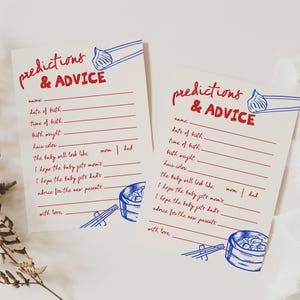 predictions
& ADVICE
name:
date of birth:
time of birth:
birth weight:
hair color:
the baby will look like: mom | dad
I hope the baby gets mom's:
I hope the baby gets dad's:
advice for the new parents:
with love,
predictions
& ADVICE
name:
date of birth:
time of birth:
birth weight:
hair color:
the baby will look like: mom | dad
I hope the baby gets mom's:
I hope the baby gets dad's:
advice for the new parents:
with love,